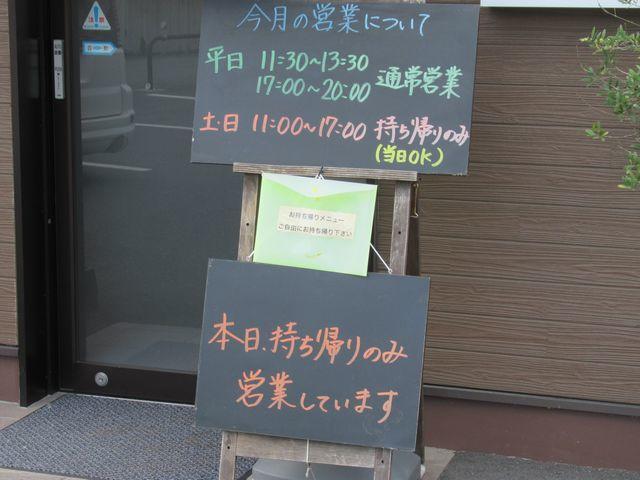 今月の営業について
平日 11:30~13:30
17:00~20:00 通常営業
土・日 11:00~17:00 持ち帰りのみ
(当日OK)
お持ち帰りメニュー
ご自由にお持ち帰り下さい
本日、持ち帰りのみ
営業しています